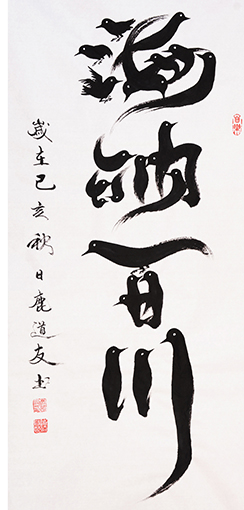 海纳百川
歲在己亥秋日鹿道友书